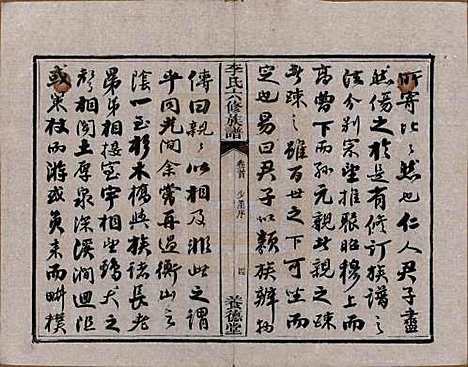 所寄比比然也仁人君子盡
然傷之於是有修訂族譜之
法分別宗坐推服昭穆上而
高曾下而孫元親親之疎
疎之雖百世之下可坐而
定也易曰君子以類族辨物
李氏六修族譜
卷首
少墨序
四
養德堂
傳曰親親以相及非此之謂
乎同光間余嘗再過衡山之
陰一至杉木橋與族諸長老
昂弟相接室宇相望鷄犬之
聲相聞土厚泉深溪澗迴洹
或策杖而游或負耒而畊樸